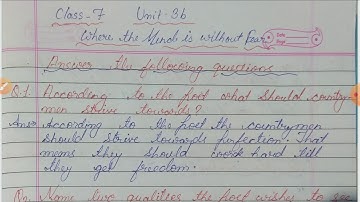 Class-7 Unit-3b
Where the Mind is without Fear
Date
Page
Answer the following questions
Q.1. According to the poet what should country
men strive towards?
Ans: According to the poet the countrymen
should strive towards perfection. That
means they should work hard till
they get freedom.
Name two qualities the poet wishes to